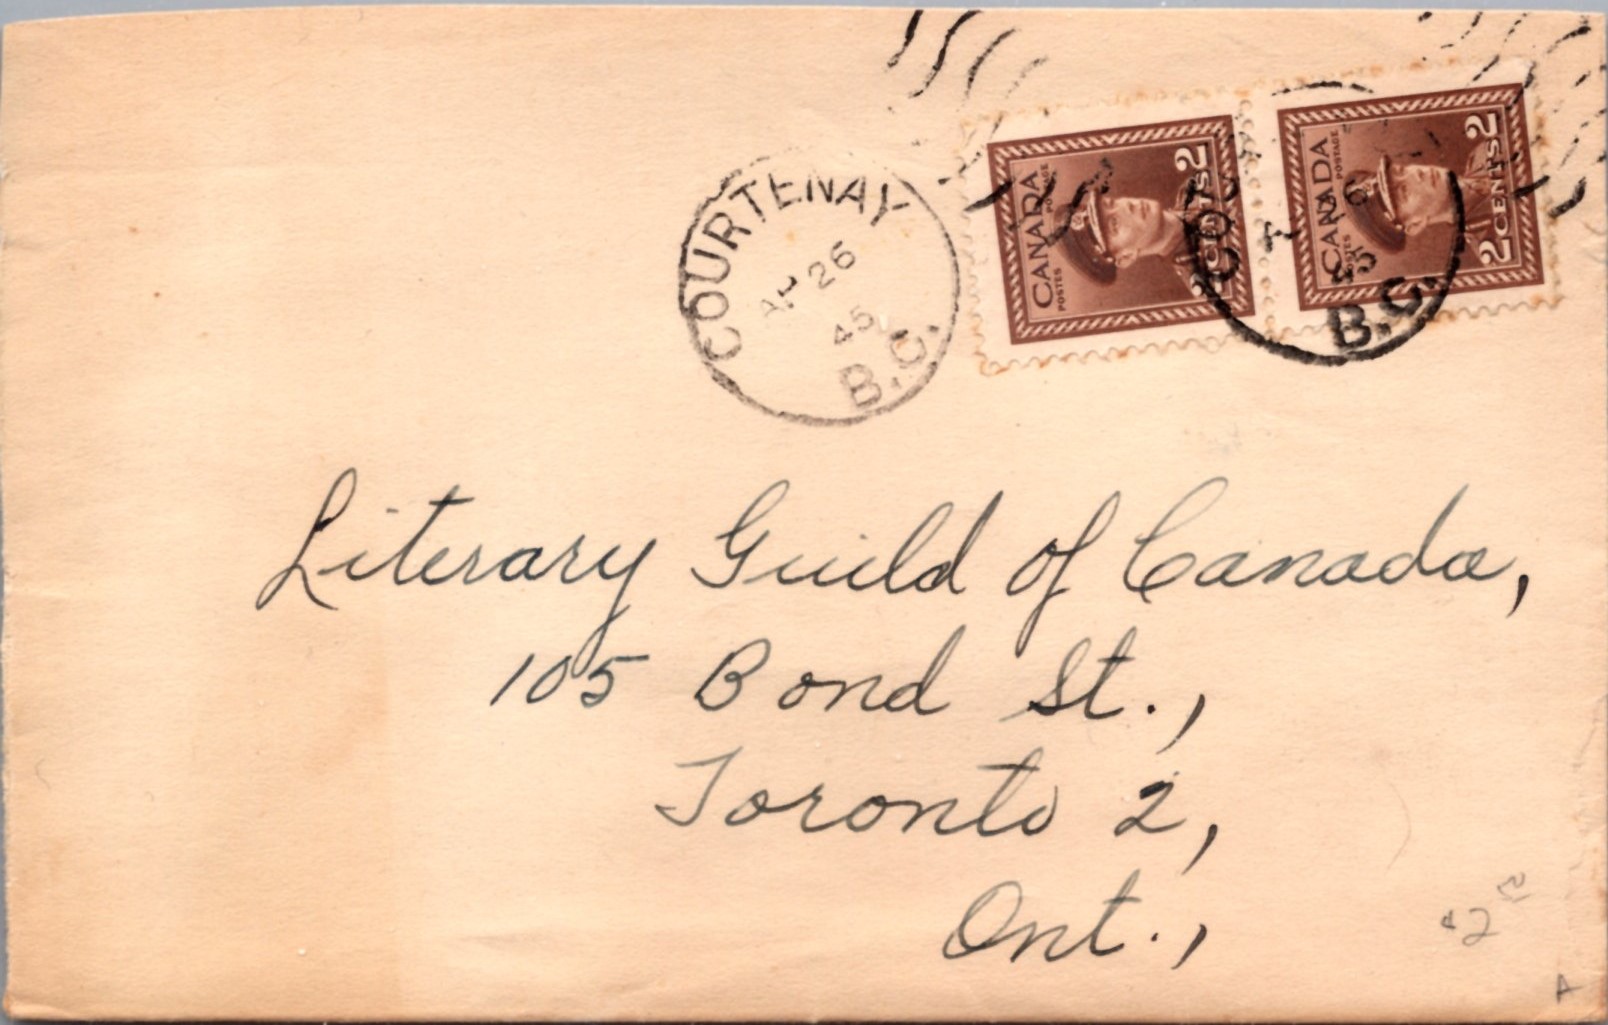 COURTENAY
AP 26
45
B.C.
CANADA
POSTES POSTAGE
2 CENTS 2
CANADA
POSTES POSTAGE
2 CENTS 2
COU
45
B.C.
Literary Guild of Canada,
105 Bond St.,
Toronto 2,
Ont.,